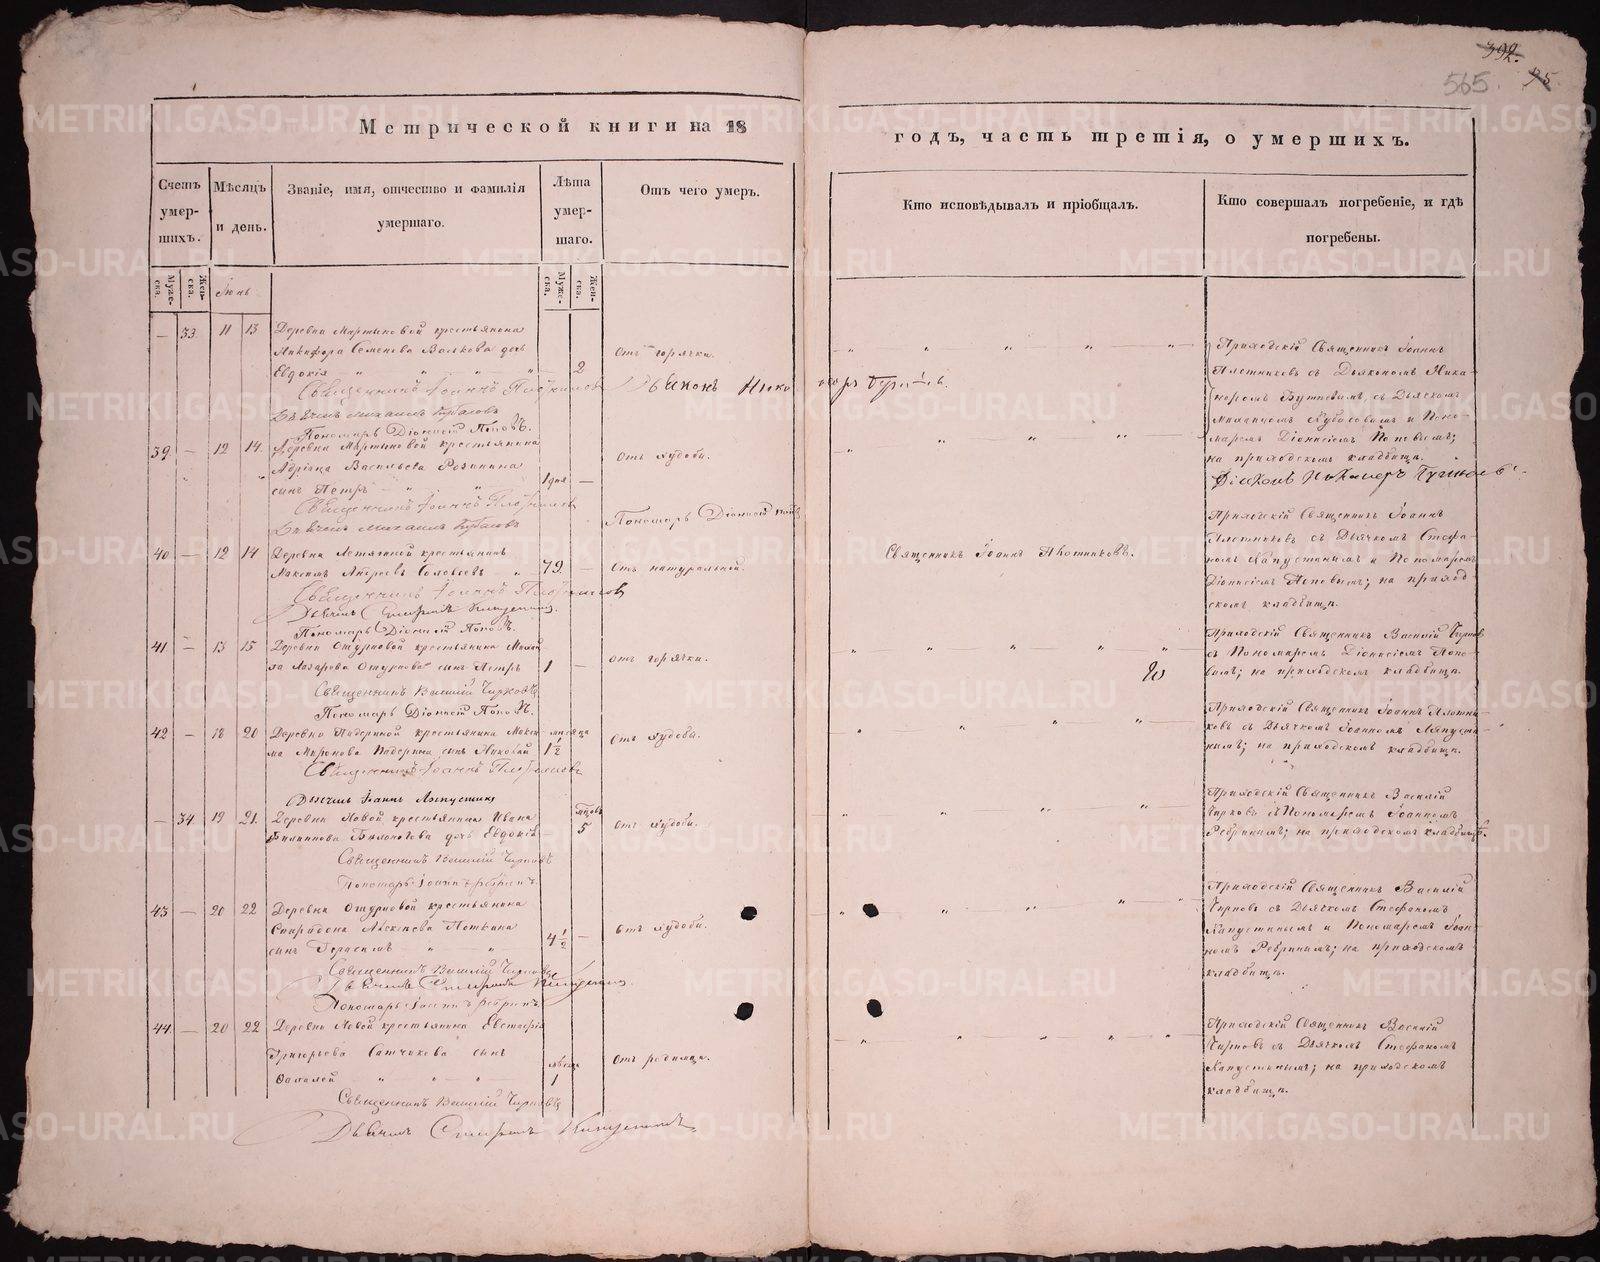 392.
565. 75
Метрической книги на 18
годъ, часть третія, о умершихъ.
Счетъ умер- шихъ.
Мѣсяцъ и день.
Званіе, имя, отчество и фамилія умершаго.
Лѣта умер- шаго.
Отъ чего умеръ.
Кто исповѣдывалъ и пріобщалъ.
Кто совершалъ погребеніе, и гдѣ погребены.
Муже- ска.
Жен- ска.
Іюнь
Муже- ска.
Жен- ска.
— 33 11 13 Деревни Мартыновой крестьянина
Никифора Семенова Волкова дочь
Евдокія 2
Отъ горячки.
Приходскій Священникъ Іоаннъ
Плотниковъ съ Дьякономъ Ника-
норомъ съ Дьячкомъ
и Поно-
маремъ Діонисіемъ Поповымъ;
на приходскомъ кладбищѣ.
Священникъ Іоаннъ Плотниковъ
Дьяконъ Нико
Дьячекъ Михаилъ
Пономарь Діонисій Поповъ.
39 — 12 14 Деревни Мартыновой крестьянина
Васильева
сынъ Петръ 1 дня —
Отъ худобы.
Діаконъ
Священникъ Іоаннъ Плотниковъ
Дьячекъ Михаилъ
Пономарь Діонисій Поповъ
Приходскій Священникъ Іоаннъ
Плотниковъ съ Дьячкомъ Стефа-
номъ Капустинымъ и Пономаремъ
Діонисіемъ Поповымъ; на приход-
скомъ кладбищѣ.
40 — 12 14 Деревни крестьянинъ
Максимъ Андреевъ Соловьевъ 79 —
Отъ натуральной.
Священникъ Іоаннъ Плотниковъ.
Священникъ Іоаннъ Плотниковъ
Дьячекъ Стефанъ Капустинъ.
Пономарь Діонисій Поповъ.
41 — 13 15 Деревни Ошурковой крестьянина Михай
ла Лазарева Ошуркова сынъ Петръ 1 —
Отъ горячки.
Приходскій Священникъ Василій Чирковъ
съ Пономаремъ Діонисіемъ Попо-
вымъ; на приходскомъ кладбищѣ.
Священникъ Василій Чирковъ
Пономарь Діонисій Поповъ.
42 — 18 20 Деревни Падериной крестьянина Макси
ма Миронова Падерина сынъ Николай мѣсяца 1 1/2
Отъ худобы.
Приходскій Священникъ Іоаннъ Плотни-
ковъ съ Дьячкомъ Іоанномъ Ляпусти-
нымъ; на приходскомъ кладбищѣ.
Священникъ Іоаннъ Плотниковъ
Дьячекъ Іоаннъ Ляпустинъ
— 34 19 21. Деревни Новой крестьянина Ивана
Филиппова дочь Евдокія мѣсяцовъ 5
Отъ худобы.
Приходскій Священникъ Василій
Чирковъ съ Пономаремъ Іоанномъ
Ребринымъ; на приходскомъ кладбищѣ.
Священникъ Василій Чирковъ
Пономарь Іоаннъ Ребринъ.
43 — 20 22 Деревни Ошурковой крестьянина
Спиридона Алексѣева Поткина
сынъ Герасимъ 4 1/2 —
Отъ худобы.
Приходскій Священникъ Василій
Чирковъ съ Дьячкомъ Стефаномъ
Капустинымъ и Пономаремъ Іоан-
номъ Ребринымъ; на приходскомъ
кладбищѣ.
Священникъ Василій Чирковъ
Дьячекъ Стефанъ Капустинъ.
Пономарь Іоаннъ Ребринъ
44 — 20 22 Деревни Новой крестьянина Евстафія
Григорьева сынъ
мѣсяца 1
Отъ родимца.
Приходскій Священникъ Василій
Чирковъ съ Дьячкомъ Стефаномъ
Капустинымъ; на приходскомъ
кладбищѣ.
Священникъ Василій Чирковъ
Дьячекъ Стефанъ Капустинъ
METRIKI.GASO-URAL.RU